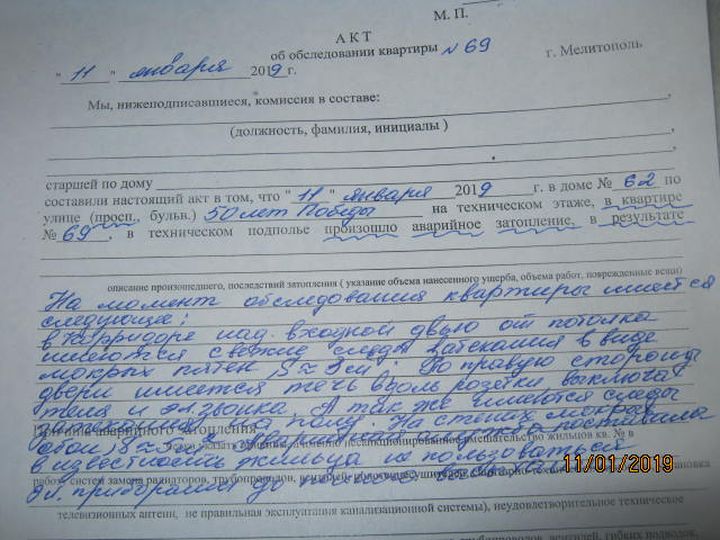 М. П.
А К Т
об обследовании квартиры № 69
" 11 " января 2019 г. г. Мелитополь
Мы, нижеподписавшиеся, комиссия в составе:
,
(должность, фамилия, инициалы )
,
,
старшей по дому
составили настоящий акт в том, что " 11 " января 2019 г. в доме № 62 по
улице (просп., бульв.) 50 лет Победы на техническом этаже, в квартире
№ 69 , в техническом подполье произошло аварийное затопление, в результате
описание произошедшего, последствий затопления ( указание объема нанесенного ущерба, объема работ, поврежденные вещи)
На момент обследования квартиры имеется
следующее:
в карридоре над входной двью от потолка
имеются свежие следы затекания в виде
мокрых пятен По правую сторону
двери имеется течь вдоль розетки выключа
теля и эл. звонка. А так же имеются следы
полу. На стенах мокрые
обои поставила
в известность жильца не пользоваться
эл. приборами до полного
работ систем замора радиаторов, трубопроводов,
11/01/2019
телевизионных антенн, не правильная эксплуатация канализационной системы), неудовлетворительное техническое